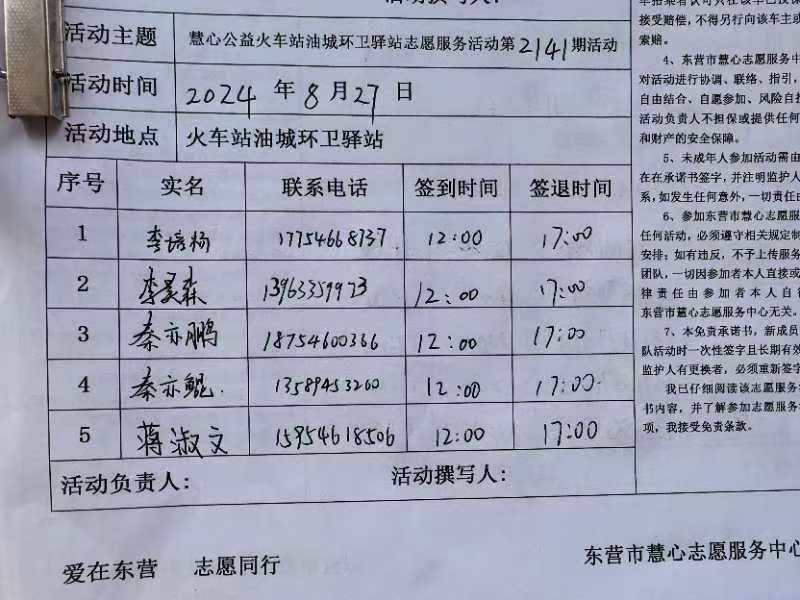 活动主题 慧心公益火车站油城环卫驿站志愿服务活动第2141期活动
活动时间 2024 年 8 月 27 日
活动地点 火车站油城环卫驿站
序号 实名 联系电话 签到时间 签退时间
1 李培杨 17754668737 12:00 17:00
2 李昊森 13963359973 12:00 17:00
3 秦亦鹏 18754600366 12:00 17:00
4 秦亦鲲 13589453260 12:00 17:00
5 蒋淑文 15954618506 12:00 17:00
活动负责人: 活动撰写人:
爱在东营 志愿同行
东营市慧心志愿服务中心
接受赔偿,不得另行向该车主或
索赔。
4、东营市慧心志愿服务中
对活动进行协调、联络、指引,
自由结合、自愿参加、风险自担
活动负责人不担保或提供任何
和财产的安全保障。
5、未成年人参加活动需由
在在承诺书签字,并注明监护人
系,如发生任何意外,一切责任由
6、参加东营市慧心志愿服
任何活动,必须遵守相关规定制
安排;如有违反,不予上传服务
团队,一切因参加者本人直接或
律责任由参加者本人自行
东营市慧心志愿服务中心无关。
7、本免责承诺书,新成员
队活动时一次性签字且长期有效
监护人有更换者,必须重新签字
我已仔细阅读该志愿服务
书内容,并了解参加志愿服务
项,我接受免责条款。